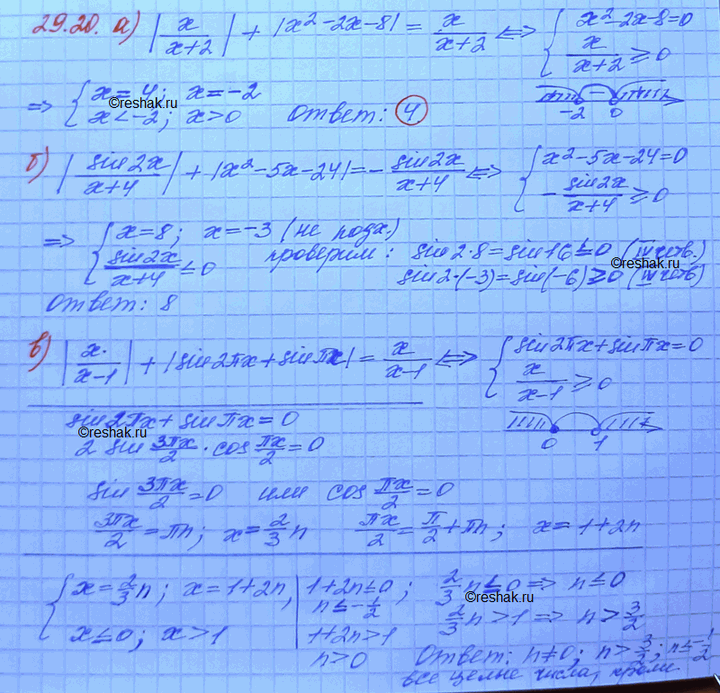 29.20. а) |x/(x+2)| + |x²-2x-8| = x/(x+2) ⟺ { x²-2x-8=0
x/(x+2) ≥ 0
⇒ { x=4; x=-2
x<-2; x>0 Ответ: 4
-2 0
©reshak.ru
б) |sin2x/(x+4)| + |x²-5x-24| = -sin2x/(x+4) ⟺ { x²-5x-24=0
-sin2x/(x+4) ≥ 0
⇒ { x=8; x=-3 (не подх.)
sin2x/(x+4) ≤ 0 проверим: sin2·8=sin16≤0 (III четв.)
sin2·(-3)=sin(-6)≥0 (I четв)
©reshak.ru
Ответ: 8
в) |x/(x-1)| + |sin2πx+sinπx| = x/(x-1) ⟺ { sin2πx+sinπx=0
x/(x-1) ≥ 0
0 1
sin2πx+sinπx=0
©reshak.ru
2 sin 3πx/2 · cos πx/2 = 0
sin 3πx/2 = 0 или cos πx/2 = 0
3πx/2 = πn; x = 2/3 n πx/2 = π/2 + πn; x = 1+2n
{ x = 2/3 n; x=1+2n,
x≤0; x>1
1+2n≤0;
n≤-1/2
1+2n>1
n>0
2/3 n≤0 ⇒ n≤0
2/3 n>1 ⇒ n>3/2
©reshak.ru
Ответ: n≠0; n>3/2; n≤-1/2
все целые числа, кроме